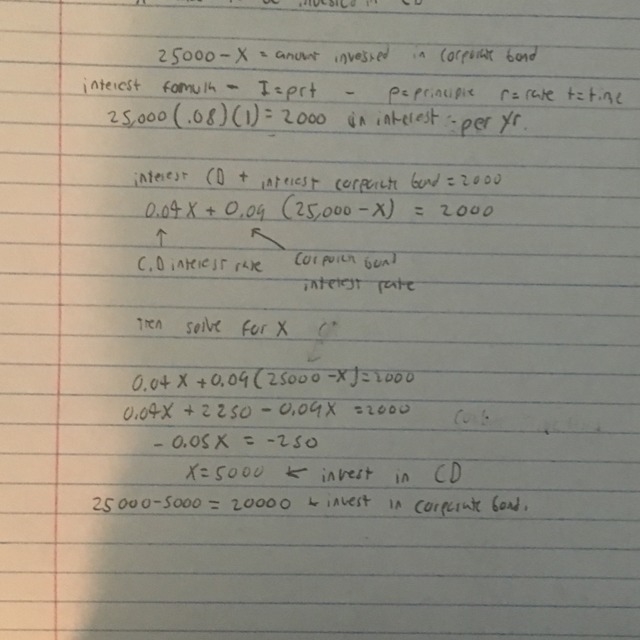 to be invested in CD
25000 - X = amount invested in corporate bond
interest formula - I=prt - p=principle r=rate t=time
25,000 (.08)(1) = 2000 in interest - per yr.
interest CD + interest corporate bond = 2000
0.04X + 0.09 (25,000 - X) = 2000
↑ ↖
C.D interest rate corporate bond
interest rate
Then solve for X
0.04X + 0.09(25000 - X) = 2000
0.04X + 2250 - 0.09X = 2000
- 0.05X = -250
X = 5000 ← invest in CD
25000-5000 = 20000 ← invest in corporate bond.